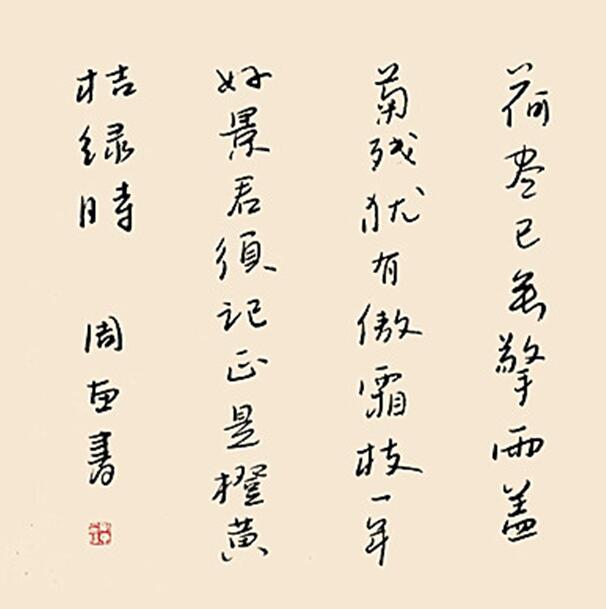 荷尽已無擎雨盖
菊残犹有傲霜枝一年
好景君須记正是橙黄
桔绿時
周書